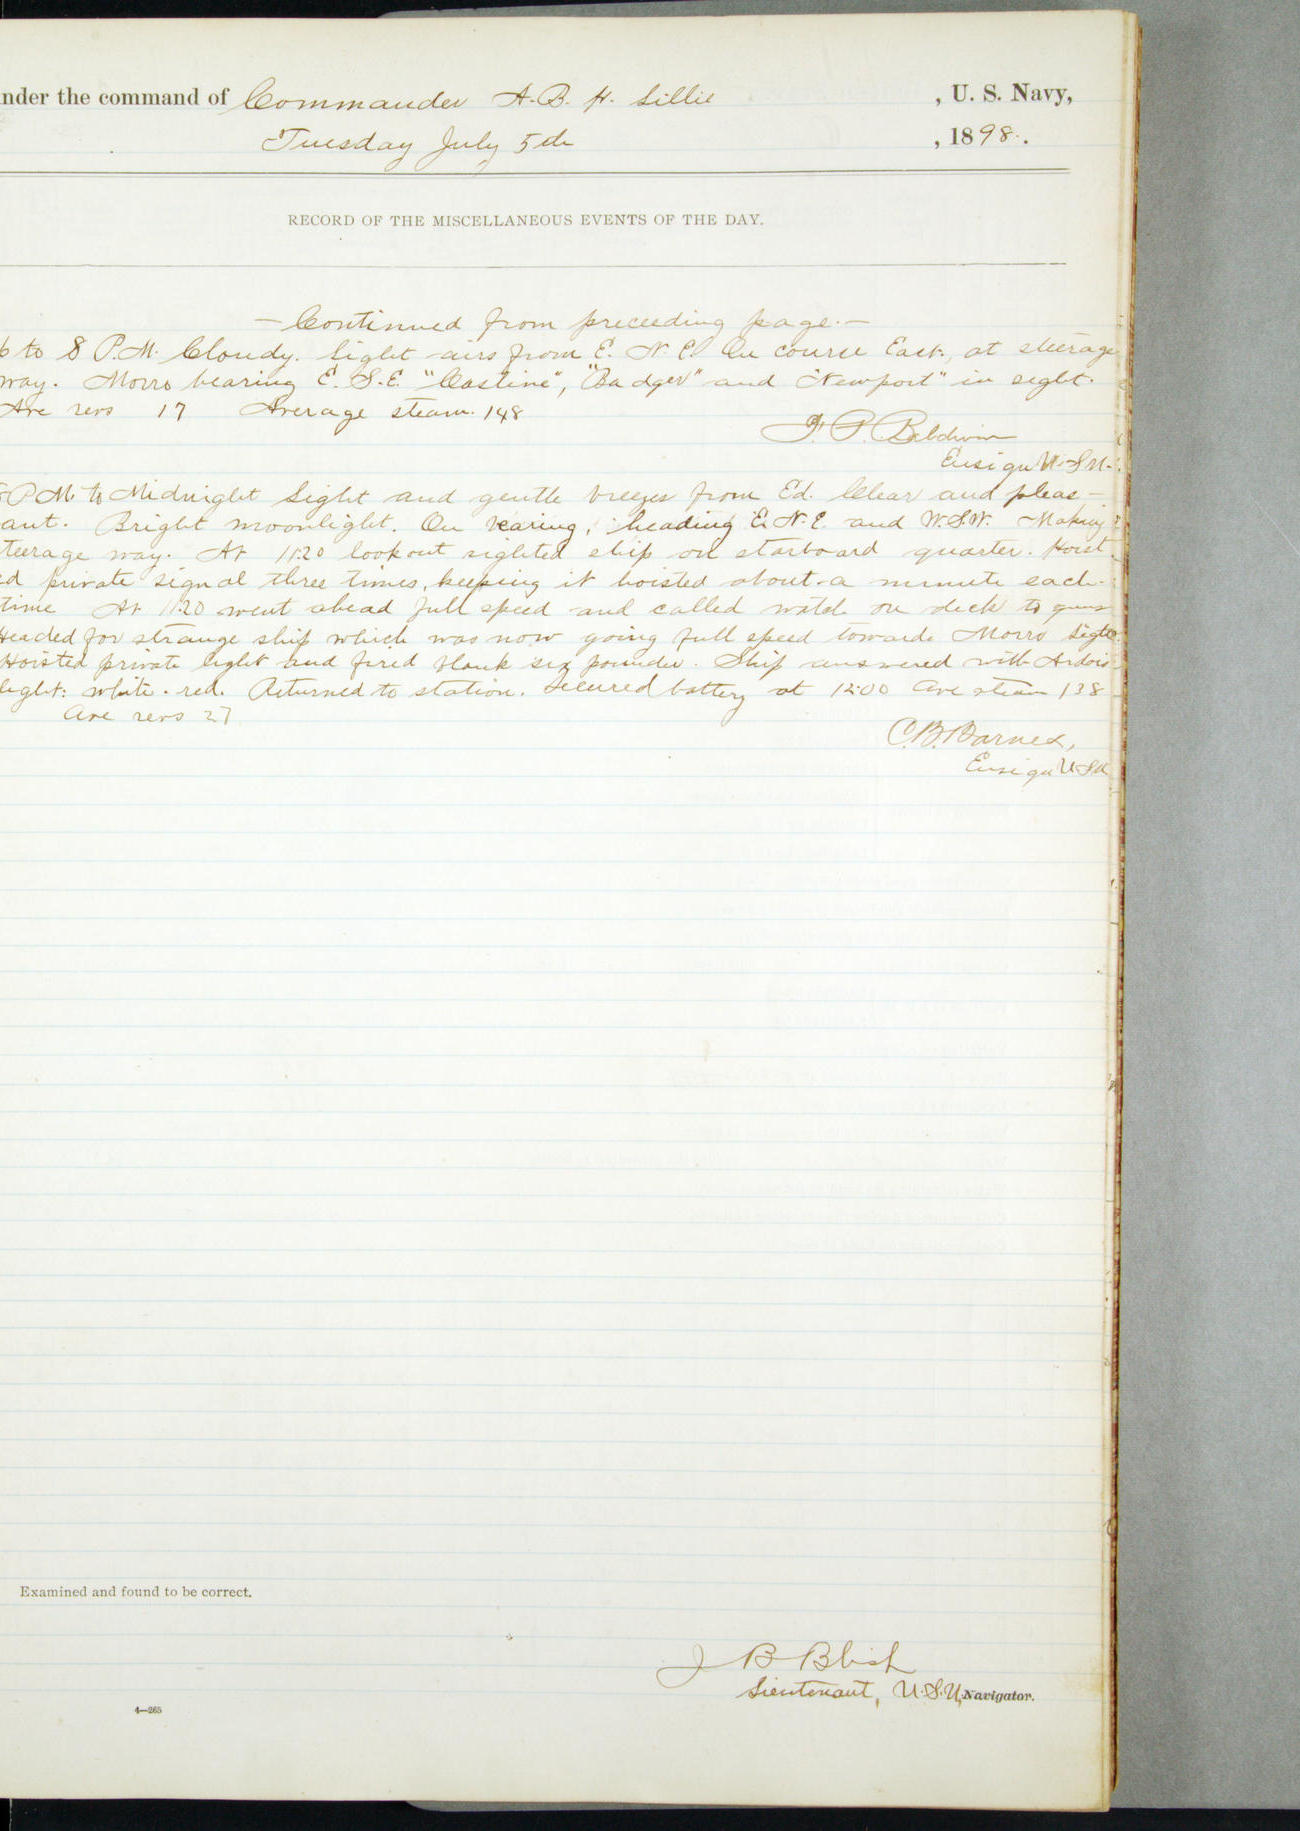 nder the command of Commander A. B. H. Lillie , U. S. Navy,
Tuesday July 5th , 1898.
RECORD OF THE MISCELLANEOUS EVENTS OF THE DAY.
— Continued from preceeding page. —
6 to 8 P.M. Cloudy. Light airs from E. N. E. On course East, at steerage
way. Morro bearing E. S. E. "Castine", "Badger" and "Newport" in sight.
Ave revs 17 Average steam. 148
F. P. Baldwin
Ensign U.S.N.
8 P.M. to Midnight Light and gentle breezes from Ed. Clear and pleas-
ant. Bright moonlight. On bearing, heading E. N. E. and W.S.W. Making
teerage way. At 11:20 lookout sighted ship on starboard quarter. Hoist
ed private signal three times, keeping it hoisted about a minute each
time At 11:20 went ahead full speed and called watch on deck to guns
Headed for strange ship which was now going full speed towards Morro Light
Hoisted private light and fired blank six pounder. Ship answered with Ardois
light: white. red. Returned to station. Secured battery at 12:00 Ave steam 138
Ave revs 27
C. B. Barnes,
Ensign U.S.N
Examined and found to be correct.
J B Blish
Lieutenant, U.S.N, Navigator.
4—265